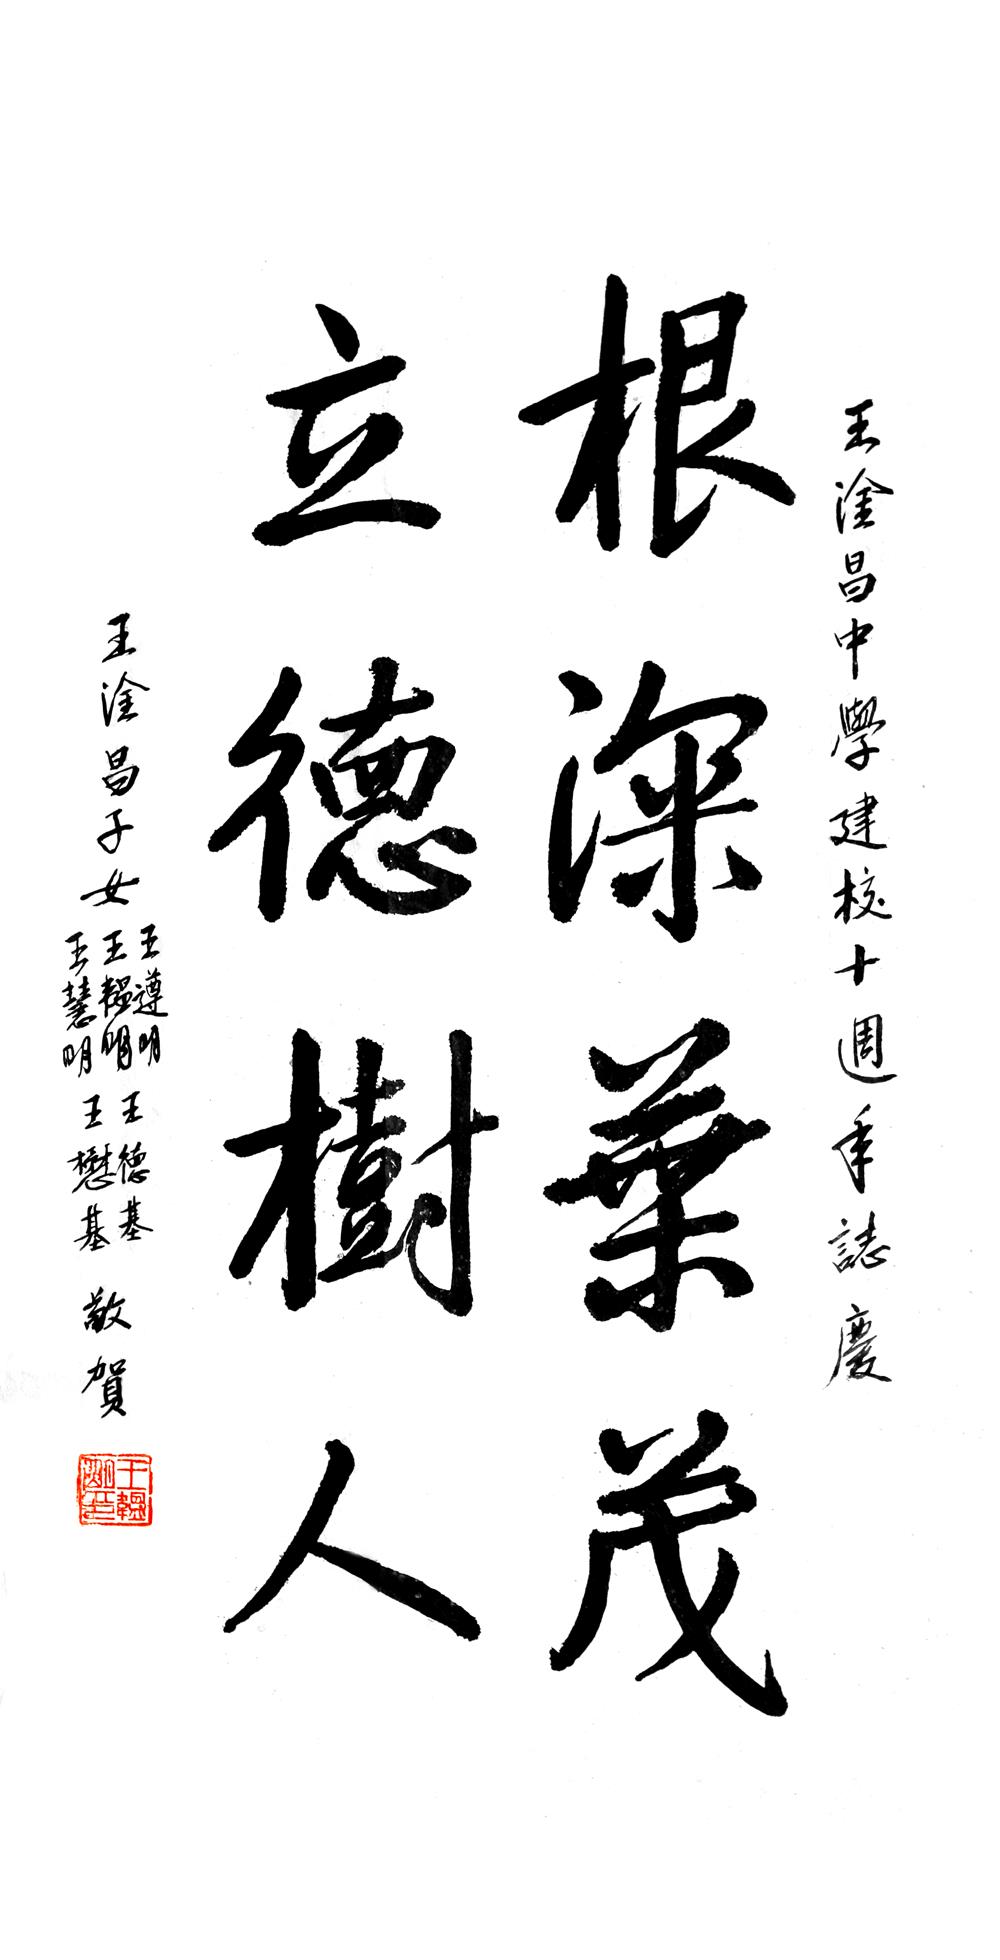 王淦昌中學建校十週年誌慶
根深葉茂
立德樹人
王淦昌子女
王遵明
王韞明
王慧明
王德基
王懋基
敬賀
王韞明印